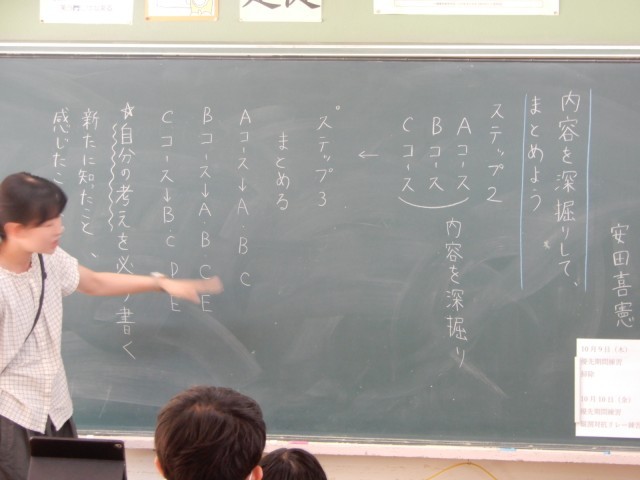 安田喜憲
内容を深掘りして、
まとめよう
ステップ2
Aコース
Bコース
Cコース
内容を深掘り
←
ステップ3
まとめる
Aコース→A・B C
Bコース→A B C E
Cコース→B・C D E
☆自分の考えを必 書く
新たに知ったこと、
感じたこ
10月9日(木)
10月10日(金)